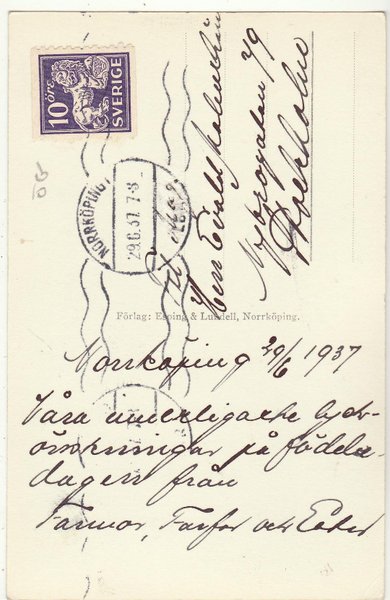 10 öre
SVERIGE
NORRKÖPING 1
29.6.37. 7-8
Herr Evald
Nybrogatan 79
Stockholm
Förlag: Esping & Lundell, Norrköping.
Norrköping 29/6 1937
Våra innerligaste lyck-
önskningar på födelse-
dagen från
Farmor, Farfar och Ester